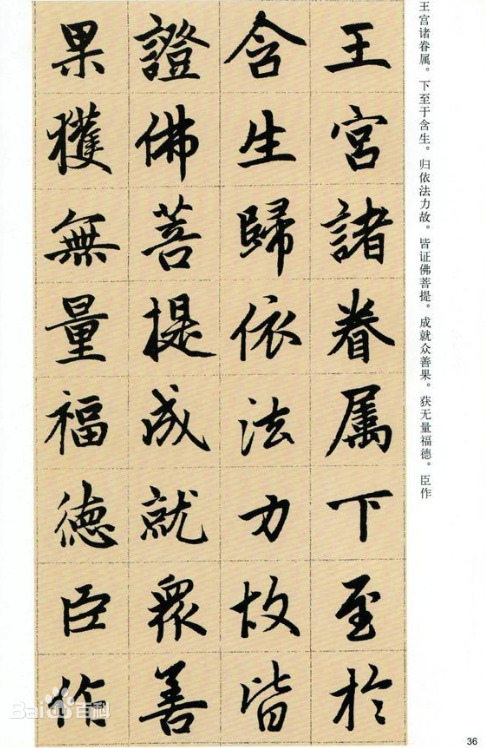 王宮諸眷属下至於
含生歸依法力故皆
證佛菩提成就眾善
果獲無量福德臣作
王宫诸眷属。下至于含生。归依法力故。皆证佛菩提。成就众善果。获无量福德。臣作
Bai百科
36